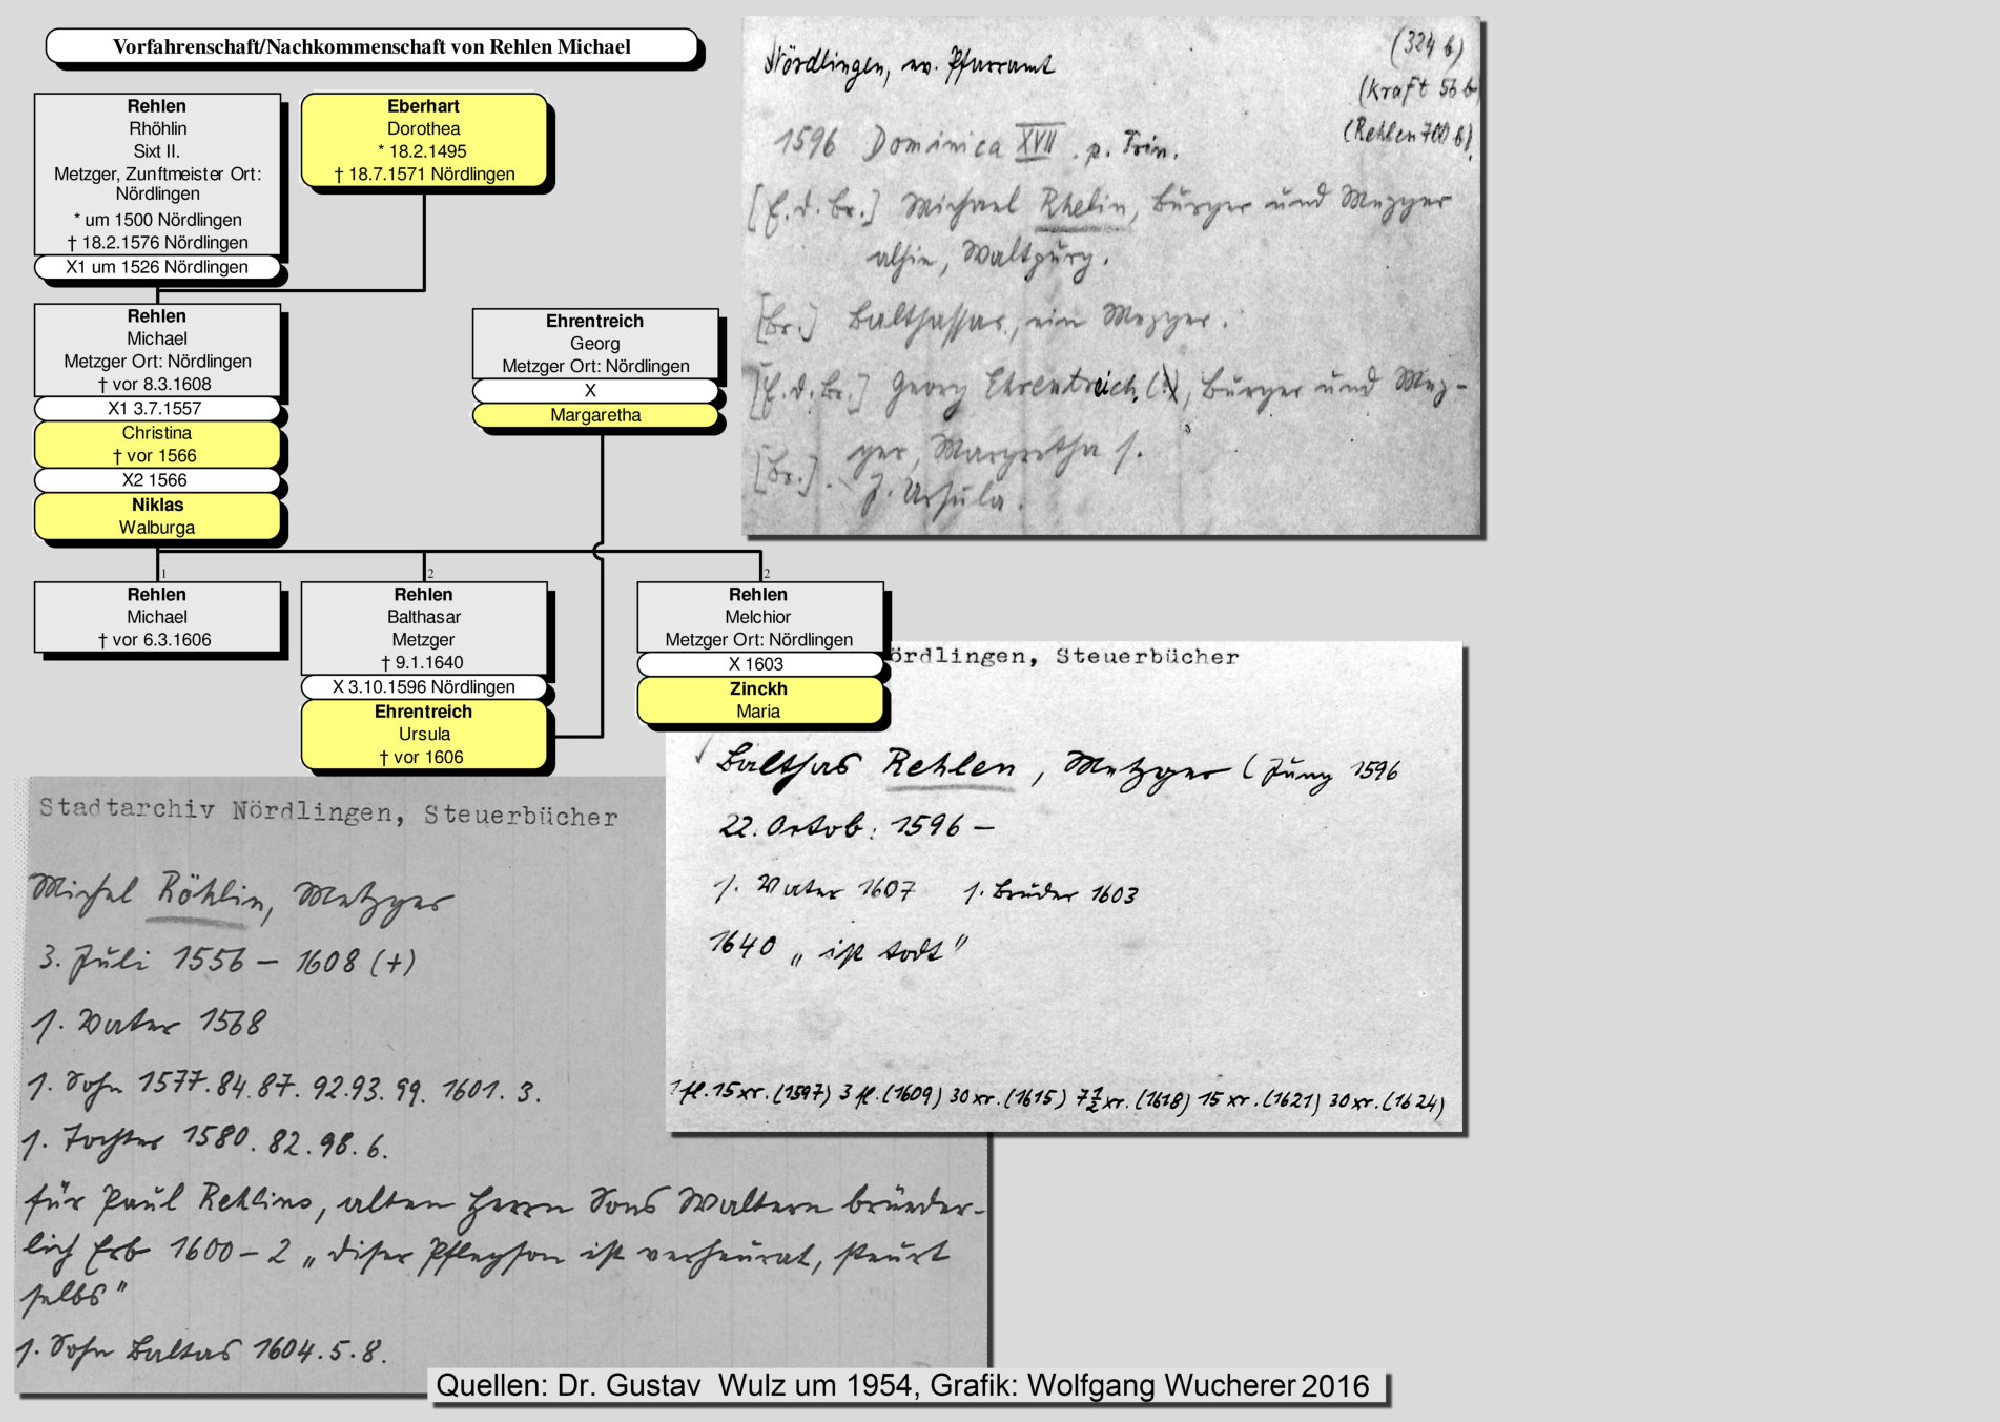 Vorfahrenschaft/Nachkommenschaft von Rehlen Michael
Rehlen
Rhöhlin
Sixt II.
Metzger, Zunftmeister Ort:
Nördlingen
* um 1500 Nördlingen
† 18.2.1576 Nördlingen
X1 um 1526 Nördlingen
Eberhart
Dorothea
* 18.2.1495
† 18.7.1571 Nördlingen
Rehlen
Michael
Metzger Ort: Nördlingen
† vor 8.3.1608
X1 3.7.1557
Christina
† vor 1566
X2 1566
Niklas
Walburga
Ehrentreich
Georg
Metzger Ort: Nördlingen
X
Margaretha
1
Rehlen
Michael
† vor 6.3.1606
2
Rehlen
Balthasar
Metzger
† 9.1.1640
X 3.10.1596 Nördlingen
Ehrentreich
Ursula
† vor 1606
2
Rehlen
Melchior
Metzger Ort: Nördlingen
X 1603
Zinckh
Maria
(324 b)
Nördlingen, ev. Pfarramt
(Kraft 56 b)
(Rehlen 700 b)
1596 Dominica XVII . p. Trin.
[E. d. Br.] Michael Rhelin, Burger und Mezger
alhie, Waltpurg.
[Br.] Balthassar, ein Mezger.
[E. d. Br.] Georg Ehrentreich (?), Burger und Mez-
ger, Margretha f.
[Br.] . J. Ursula.
ördlingen, Steuerbücher
Balthas Rehlen, Metzger (Jung 1596
22. Octob: 1596 –
s. Vater 1607 s. Bruder 1603
1640 „ist todt"
1 fl. 15 xr. (1597) 3 fl. (1609) 30 xr. (1615) 7½ xr. (1618) 15 xr. (1621) 30 xr. (1624)
Stadtarchiv Nördlingen, Steuerbücher
Michel Röhlin, Metzger
3. Juli 1556 – 1608 (+)
s. Vater 1568
s. Sohn 1577. 84. 87. 92. 93. 99. 1601. 3.
s. Tochter 1580. 82. 98. 6.
für Paul Rehlins, alten Herrn Sons Waltern brüeder-
lich Erb 1600 – 2 „diser Pflegson ist verheurat, steurt
selbs"
s. Sohn Baltas 1604. 5. 8.
Quellen: Dr. Gustav Wulz um 1954, Grafik: Wolfgang Wucherer 2016